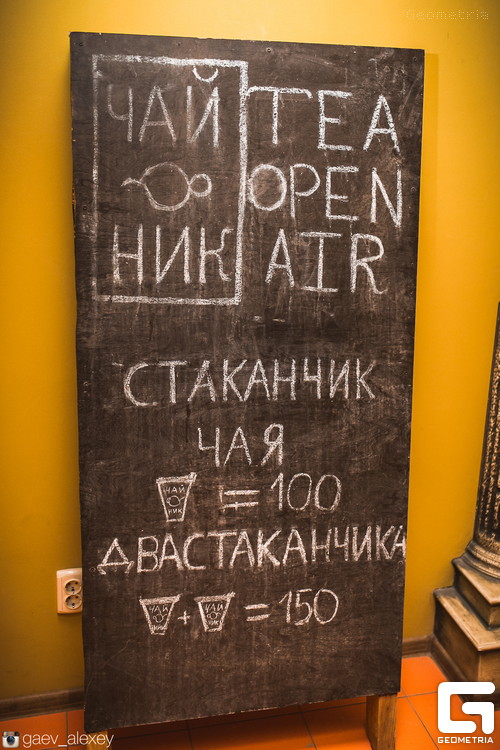 Geometria
ЧАЙ
НИК
TEA
OPEN
AIR
СТАКАНЧИК
ЧАЯ
ЧАЙ
НИК
=100
ДВА СТАКАНЧИКА
ЧАЙ
НИК
+
ЧАЙ
НИК
=150
gaev_alexey
GEOMETRIA